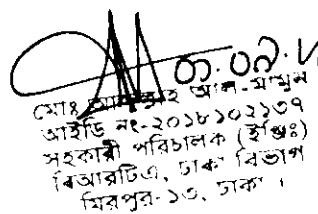 মোঃ আল-মামুন
আইডি নং-২০১৮১০২১৩৭
সহকারী পরিচালক (ইঞ্জিঃ)
বিআরটিএ, ঢাকা বিভাগ
মিরপুর-১৩, ঢাকা ।